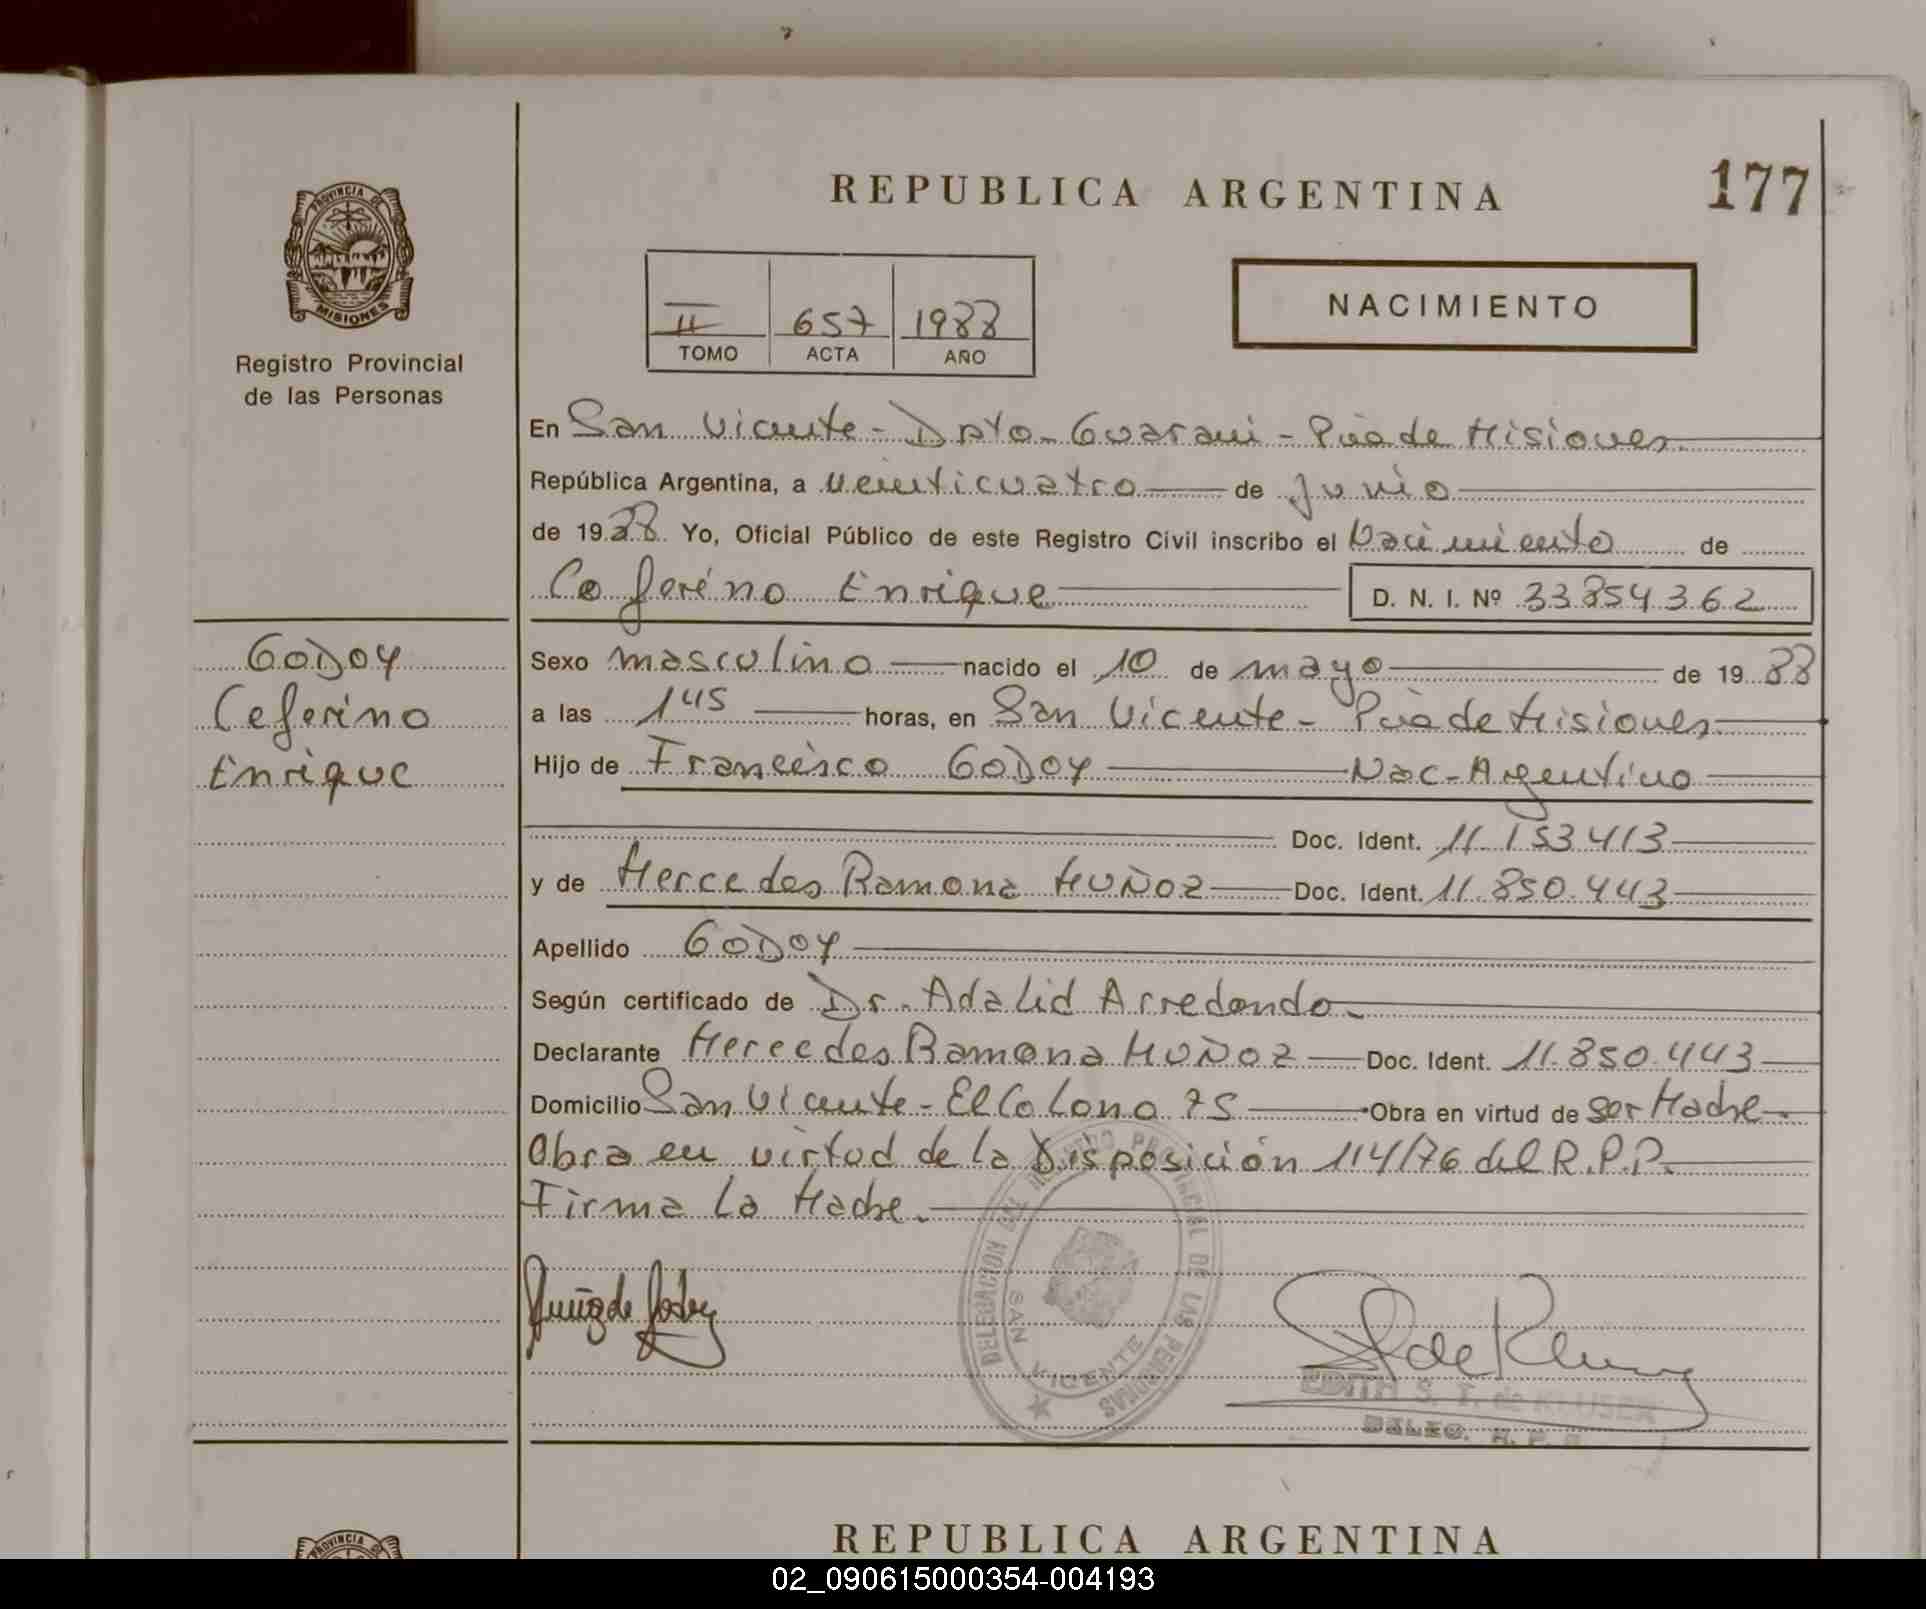 REPUBLICA ARGENTINA
177
PROVINCIA DE
MISIONES
Registro Provincial
de las Personas
II 657 1988
TOMO ACTA AÑO
NACIMIENTO
En San Vicente - Dpto. Guaraní - Pcia de Misiones
República Argentina, a veinticuatro de Junio
de 1988 Yo, Oficial Público de este Registro Civil inscribo el Nacimiento de
Ceferino Enrique D. N. I. Nº 33854362
GODOY
Ceferino
Enrique
Sexo masculino nacido el 10 de mayo de 1988
a las 1 45 horas, en San Vicente - Pcia de Misiones
Hijo de Francisco GODOY Nac - Argentino
Doc. Ident. 11.153.413
y de Mercedes Ramona MUÑOZ Doc. Ident. 11.850.443
Apellido GODOY
Según certificado de Dr. Adalid Arredondo.
Declarante Mercedes Ramona MUÑOZ Doc. Ident. 11.850.443
Domicilio San Vicente - El Colono 75 Obra en virtud de ser Madre.
Obra en virtud de la Disposición 114/76 del R.P.P.
Firma La Madre.
Muñoz de Godoy
DELEGACION DEL REGISTRO PROVINCIAL DE LAS PERSONAS
SAN VICENTE
EDITH S. T. de KLUSER
DELEG. R. P. P.
PROVINCIA DE
REPUBLICA ARGENTINA
02_090615000354-004193